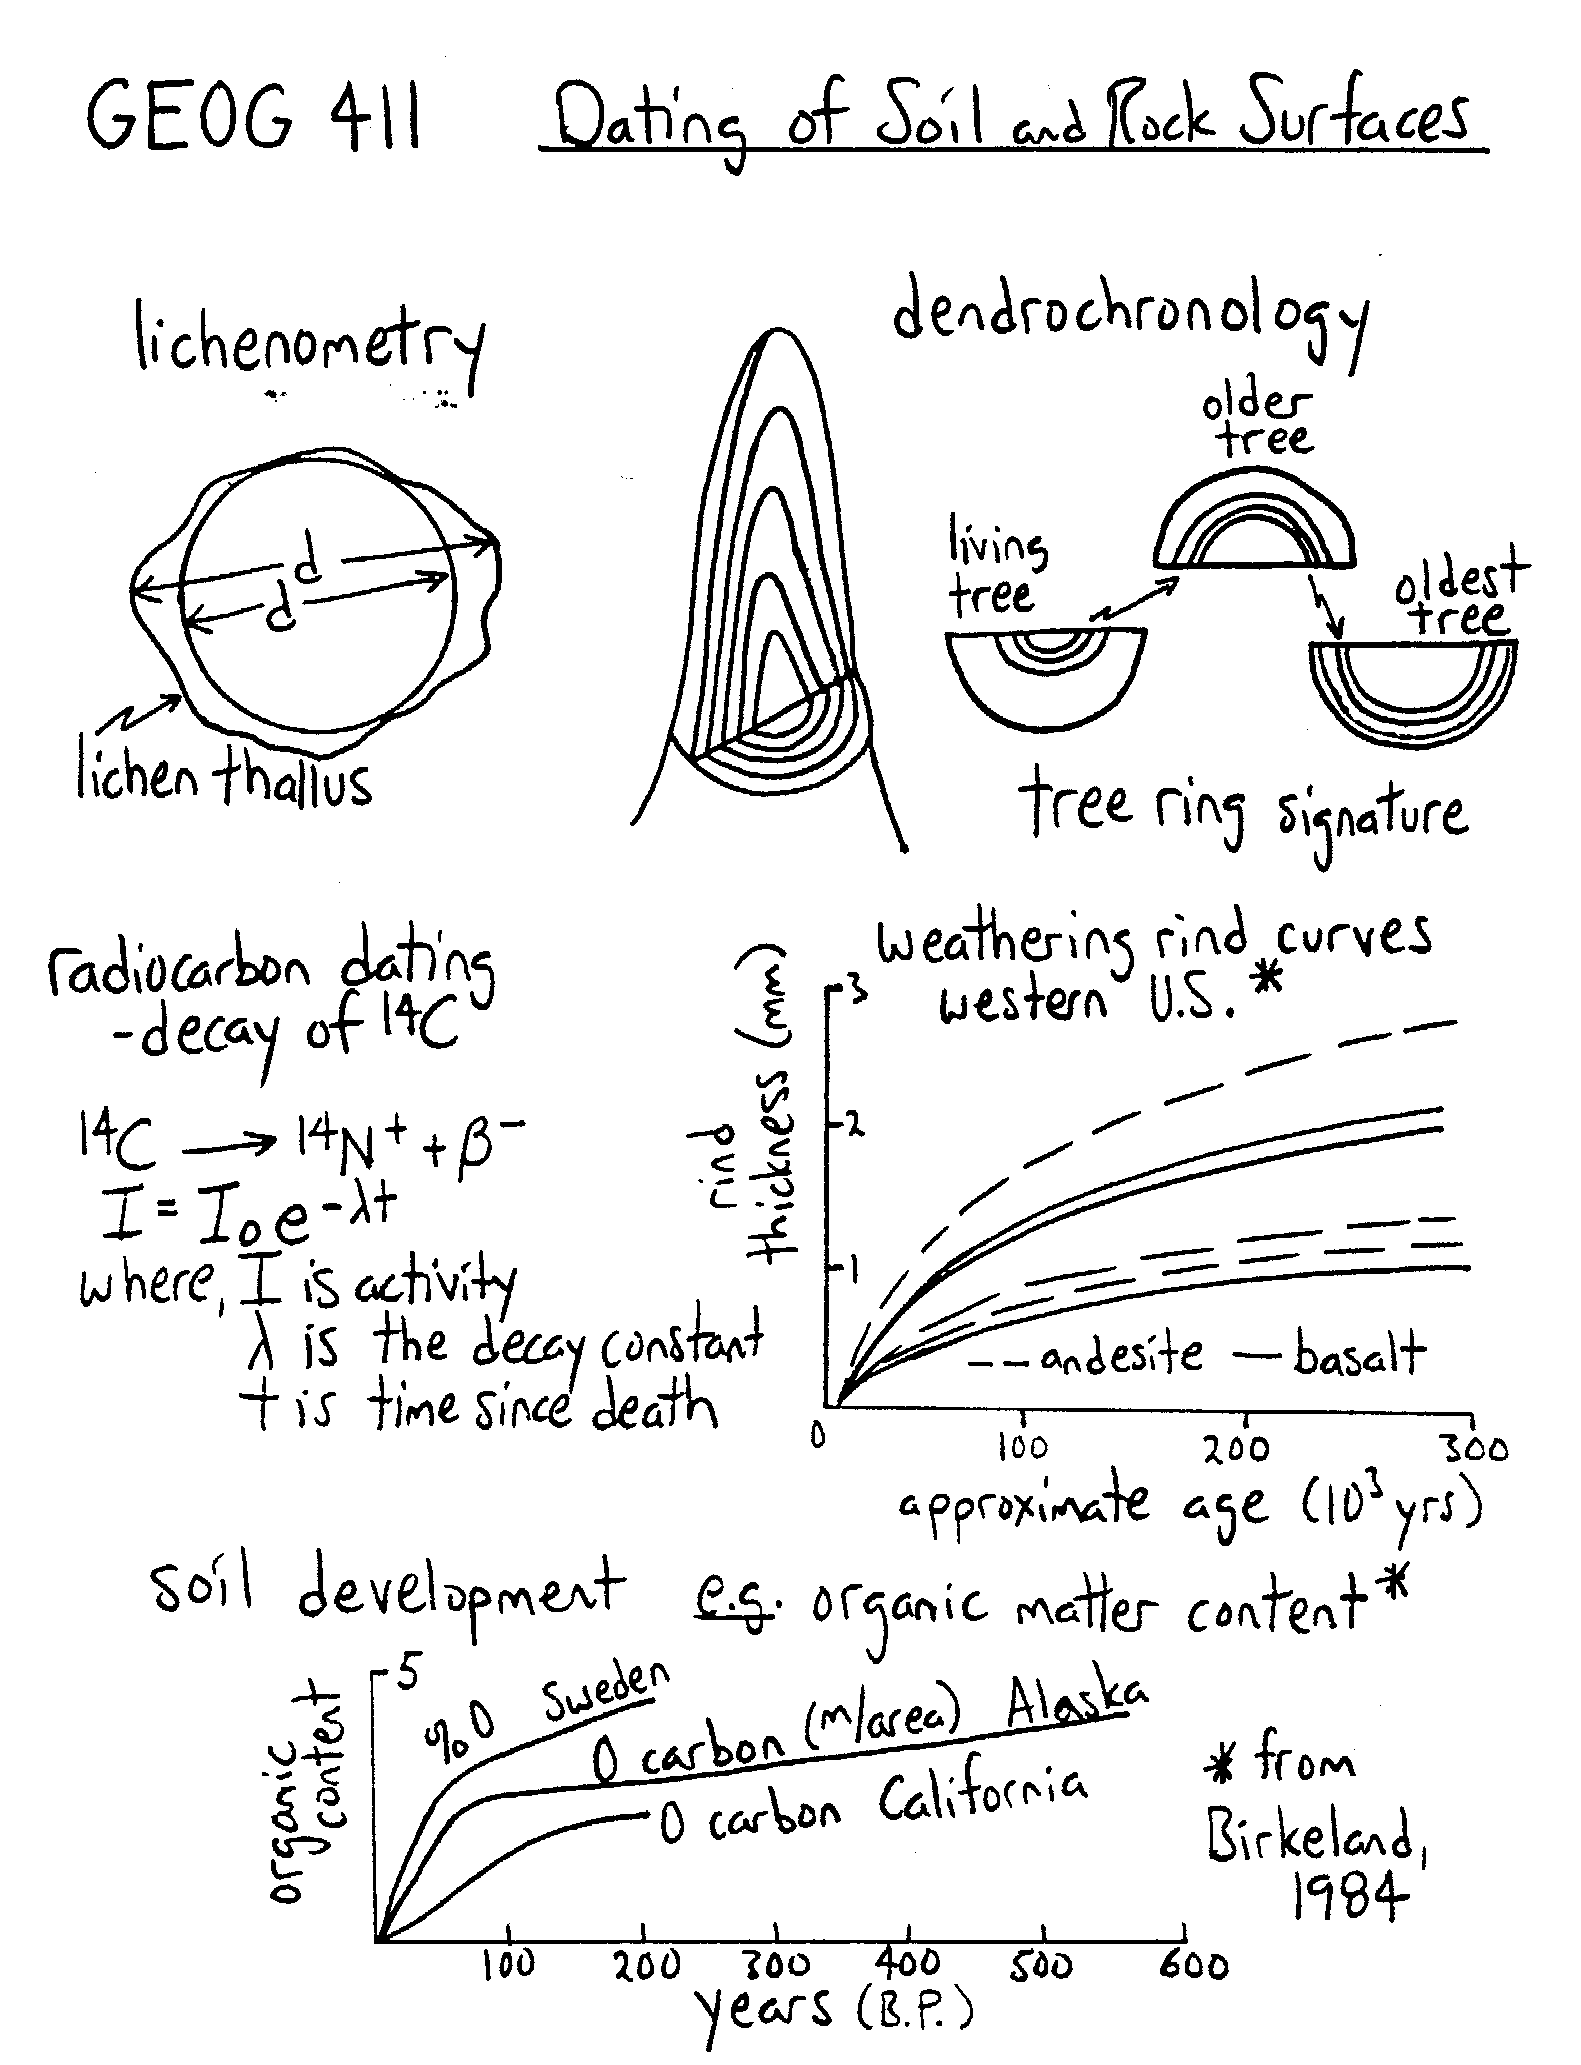 GEOG 411 Dating of Soil and Rock Surfaces
lichenometry
d
d
lichen thallus
dendrochronology
older
tree
living
tree
oldest
tree
tree ring signature
radiocarbon dating
-decay of ¹⁴C
¹⁴C → ¹⁴N⁺ + β⁻
I = I₀e^-λt
where, I is activity
λ is the decay constant
t is time since death
weathering rind curves
western U.S. *
rind
thickness (mm)
3
2
1
-- andesite — basalt
0 100 200 300
approximate age (10³ yrs)
soil development e.g. organic matter content *
organic
content
5
%O Sweden
O carbon (m/area) Alaska
O carbon California
100 200 300 400 500 600
years (B.P.)
* from
Birkeland,
1984